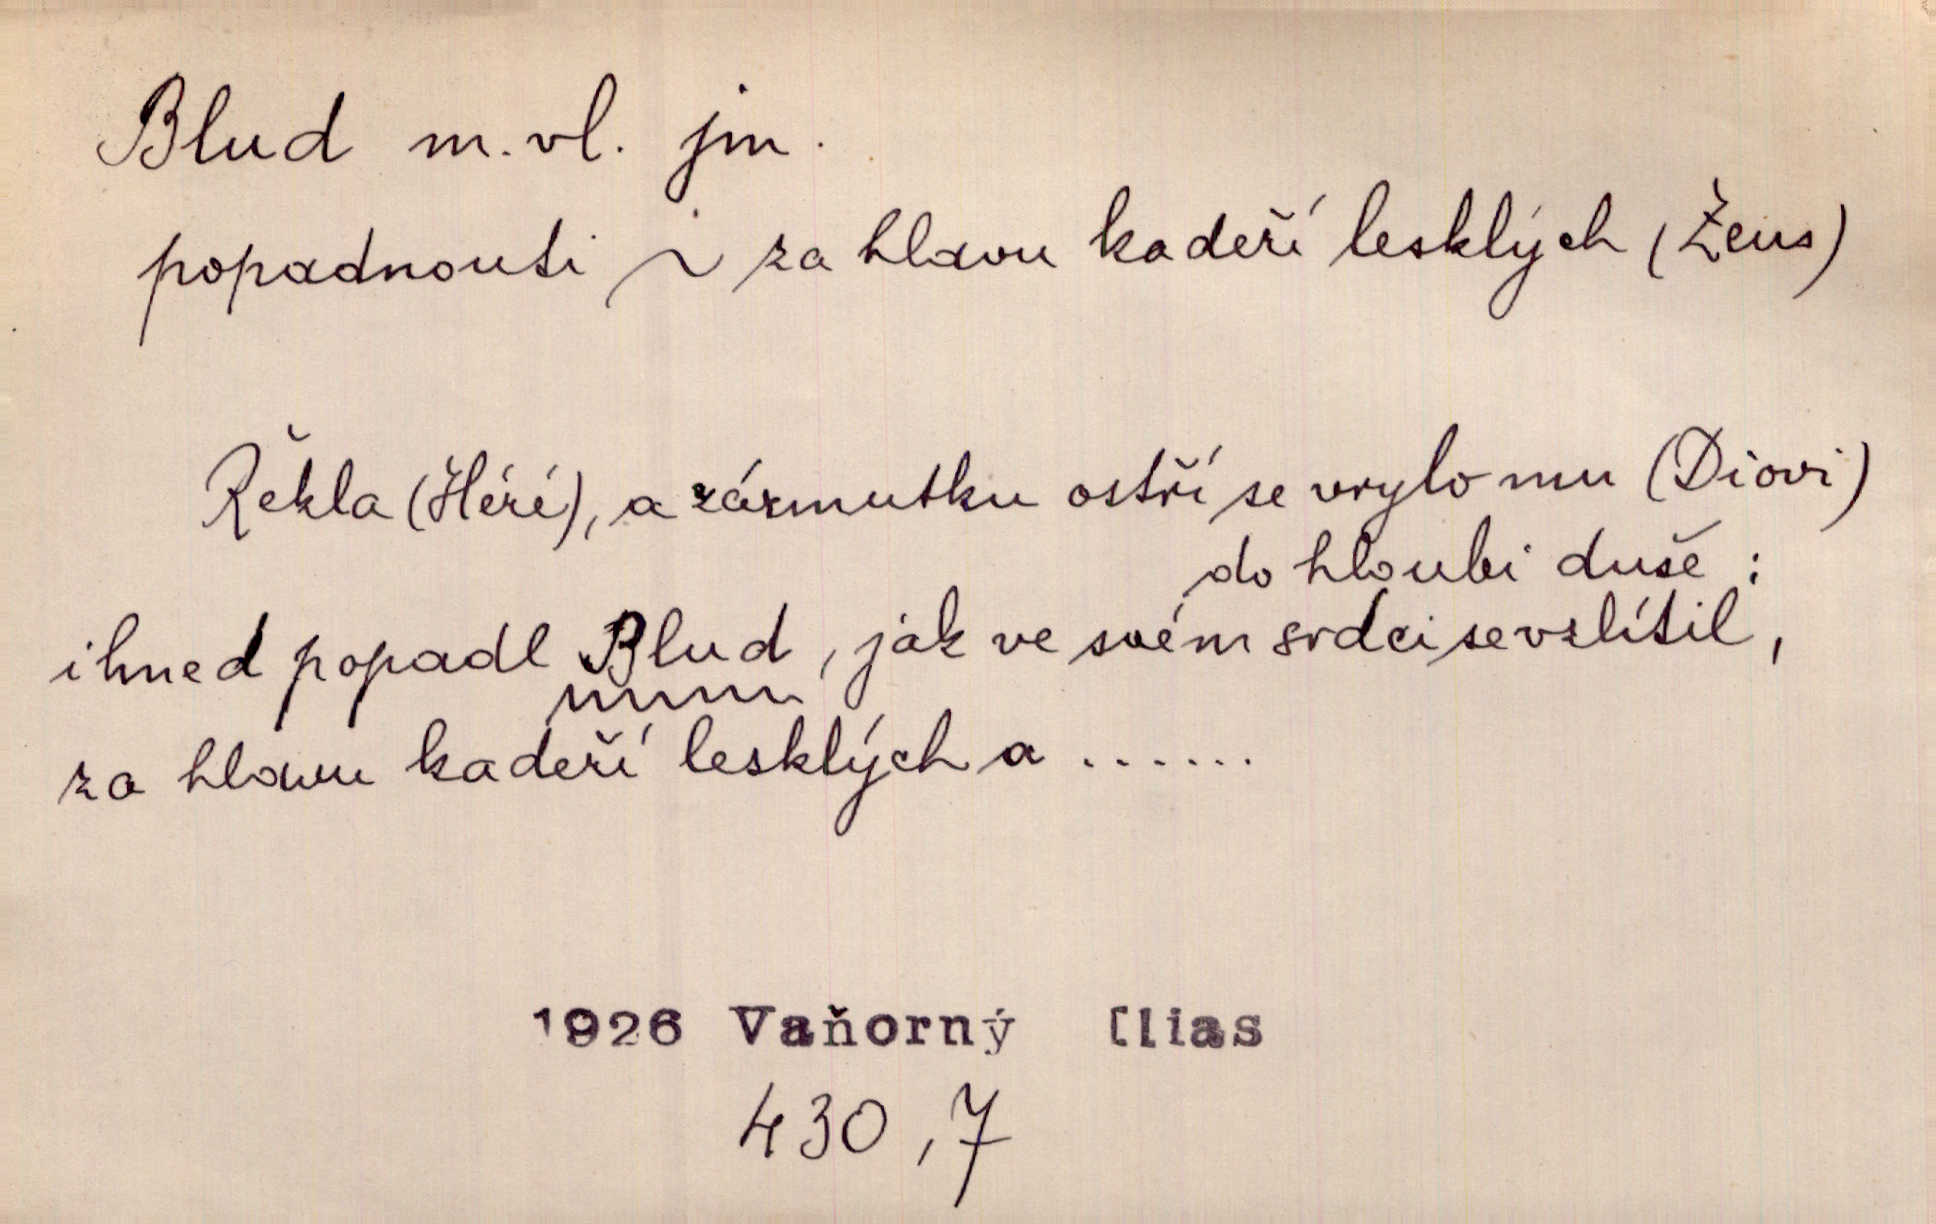 Blud m. vl. jm.
popadnouti ~ za hlavu kadeří lesklých (Zeus)
Řekla (Héré), a zármutku ostří se vrylo mu (Diovi)
do hloubi duše :
ihned popadl Blud, jak ve svém srdci se vzlítil,
za hlavu kadeří lesklých a .......
1926 Vaňorný Ilias
430,7